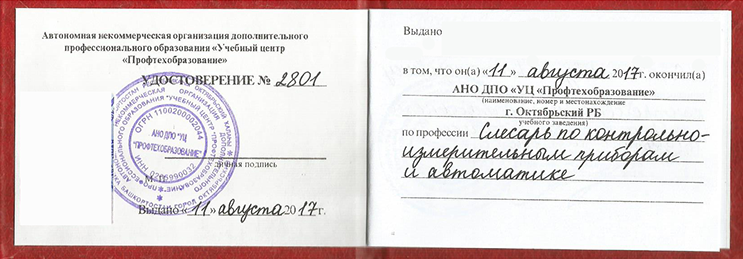 Автономная некоммерческая организация дополнительного
профессионального образования «Учебный центр
«Профтехобразование»
УДОСТОВЕРЕНИЕ № 2801
ОГРН 1100200002044
АНО ДПО "УЦ
"ПРОФТЕХОБРАЗОВАНИЕ"
личная подпись
Выдано «11» августа 2017г.
Выдано
в том, что он(а) «11» августа 2017г. окончил(а)
АНО ДПО «УЦ «Профтехобразование»
(наименование, номер и местонахождение
г. Октябрьский РБ
учебного заведения)
по профессии Слесарь по контрольно-
измерительным приборам
и автоматике